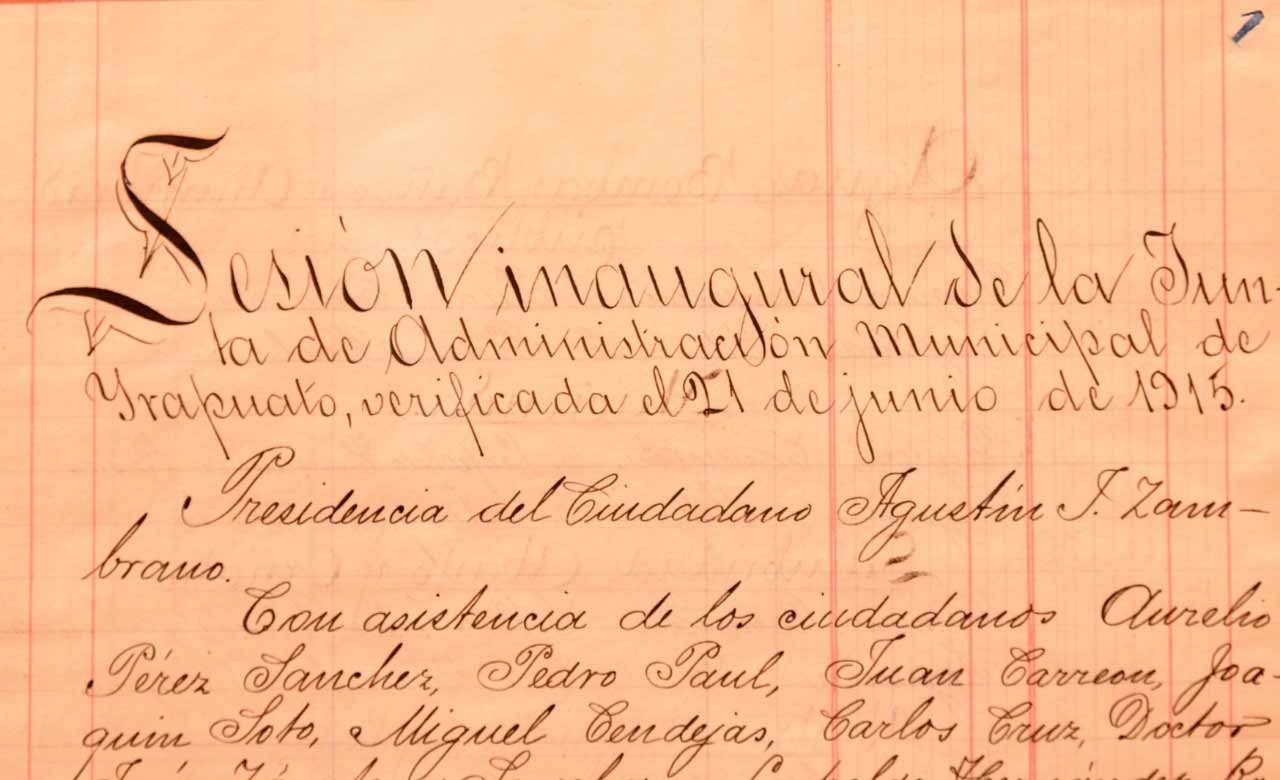 Sesión inaugural de la Jun-
ta de Administración Municipal de
Yrapuato, verificada el 21 de junio de 1915.
Presidencia del Ciudadano Agustín J. Zam-
brano.
Con asistencia de los ciudadanos Aurelio
Pérez Sanchez, Pedro Paul, Juan Carreon, Joa-
quin Soto, Miguel Cendejas, Carlos Cruz, Doctor